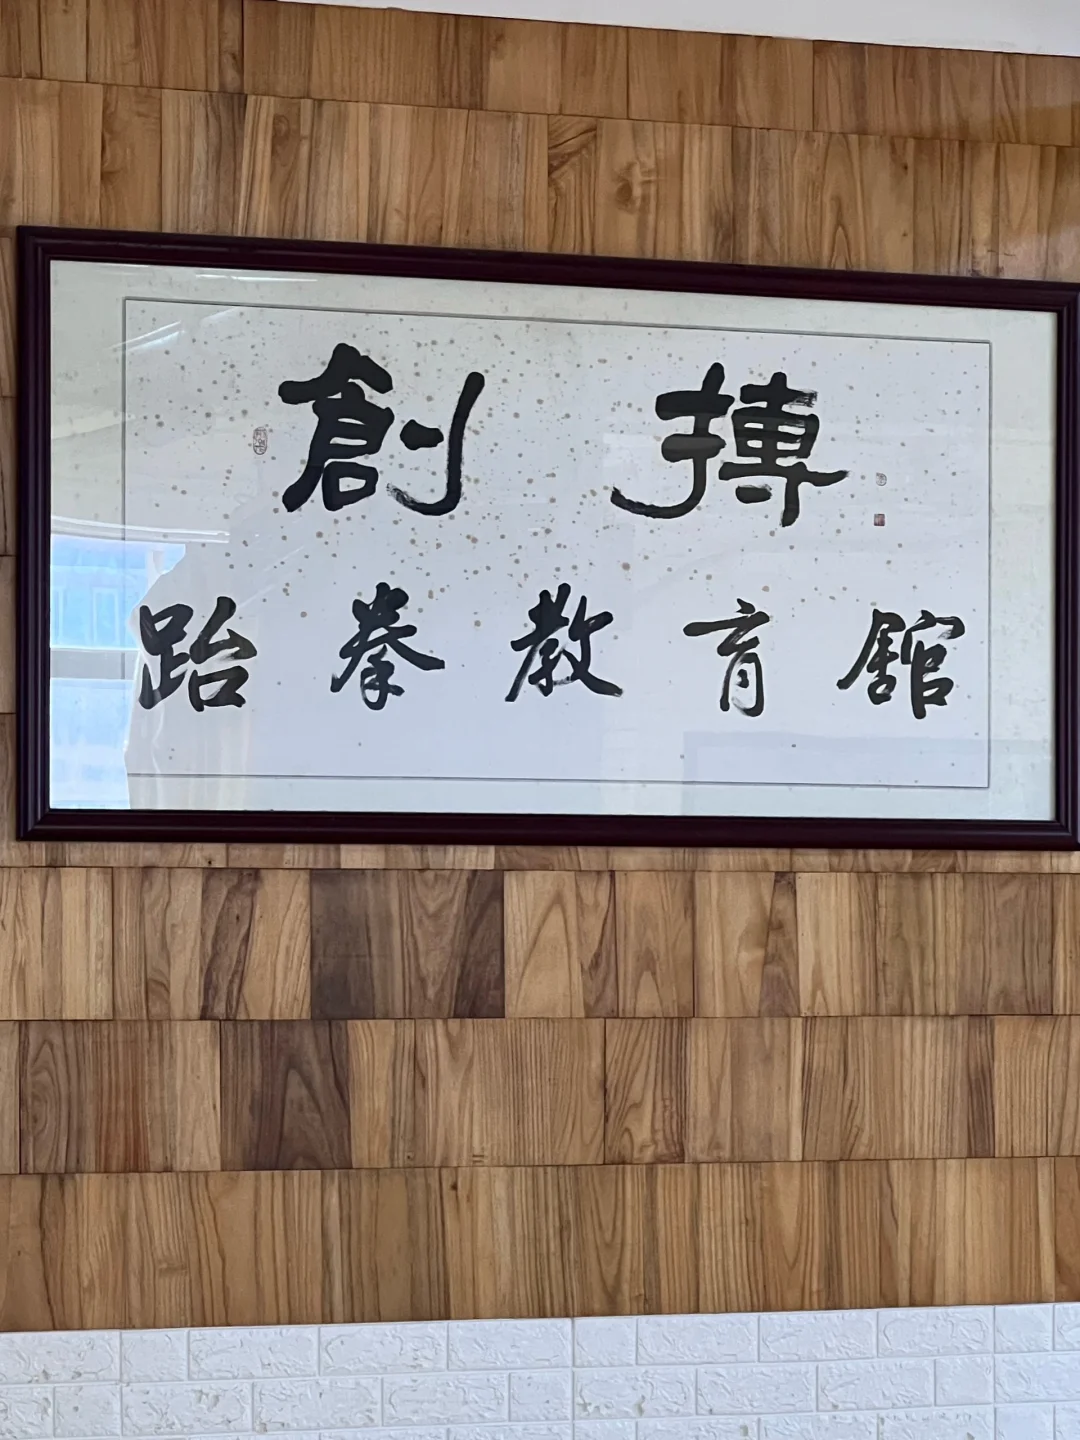 創搏
跆拳教育舘